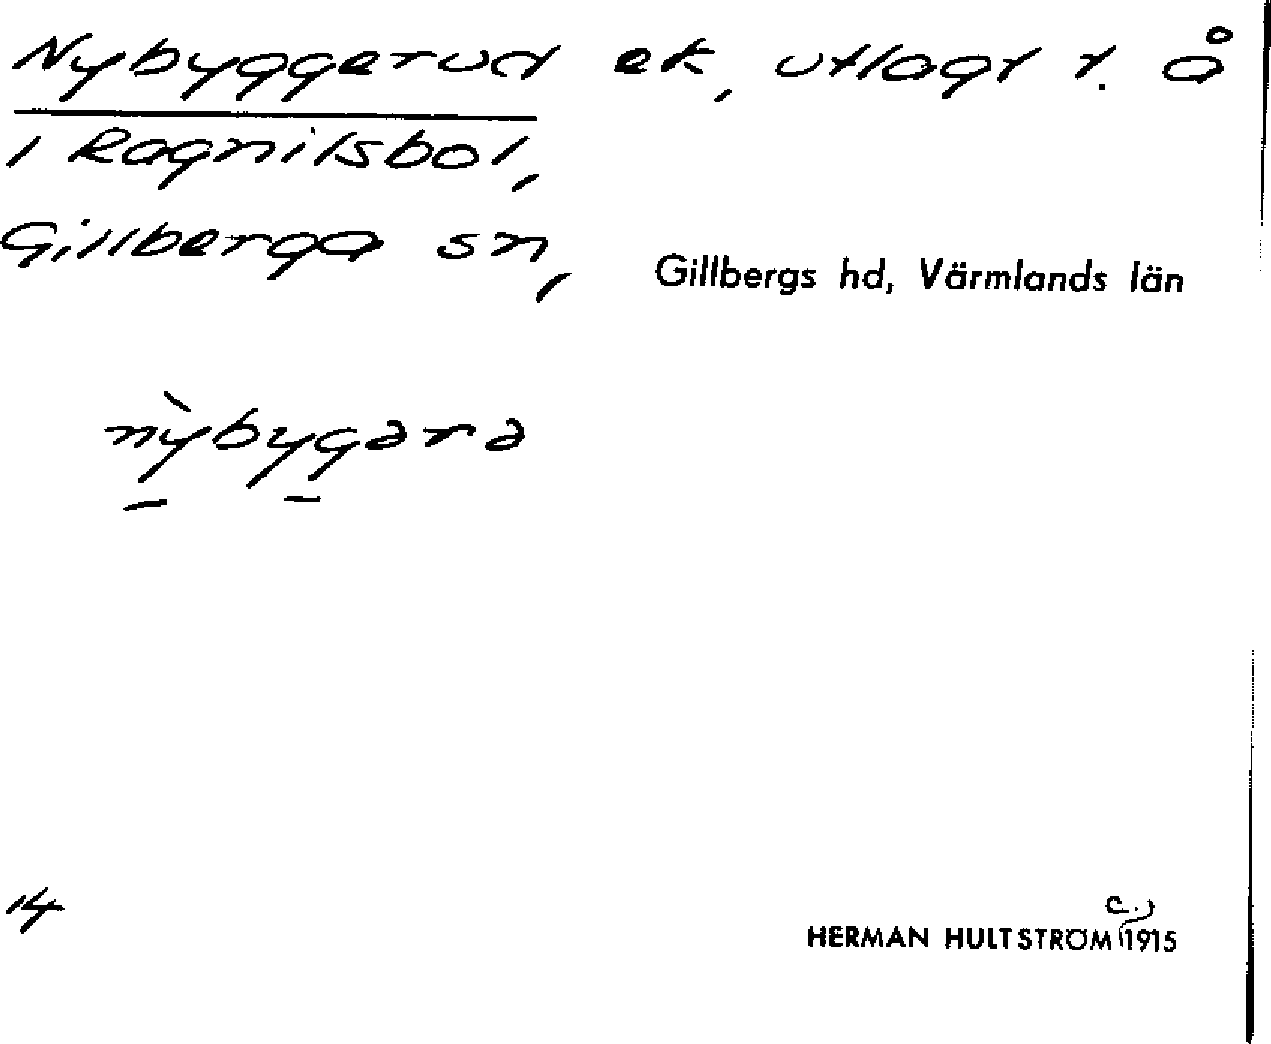 Nybyggerud ek, utlagt t. å
1 Ragnilsbol,
Gillberga sn,
Gillbergs hd, Värmlands län
nỳbygara
14
c.
HERMAN HULTSTRÖM 1915